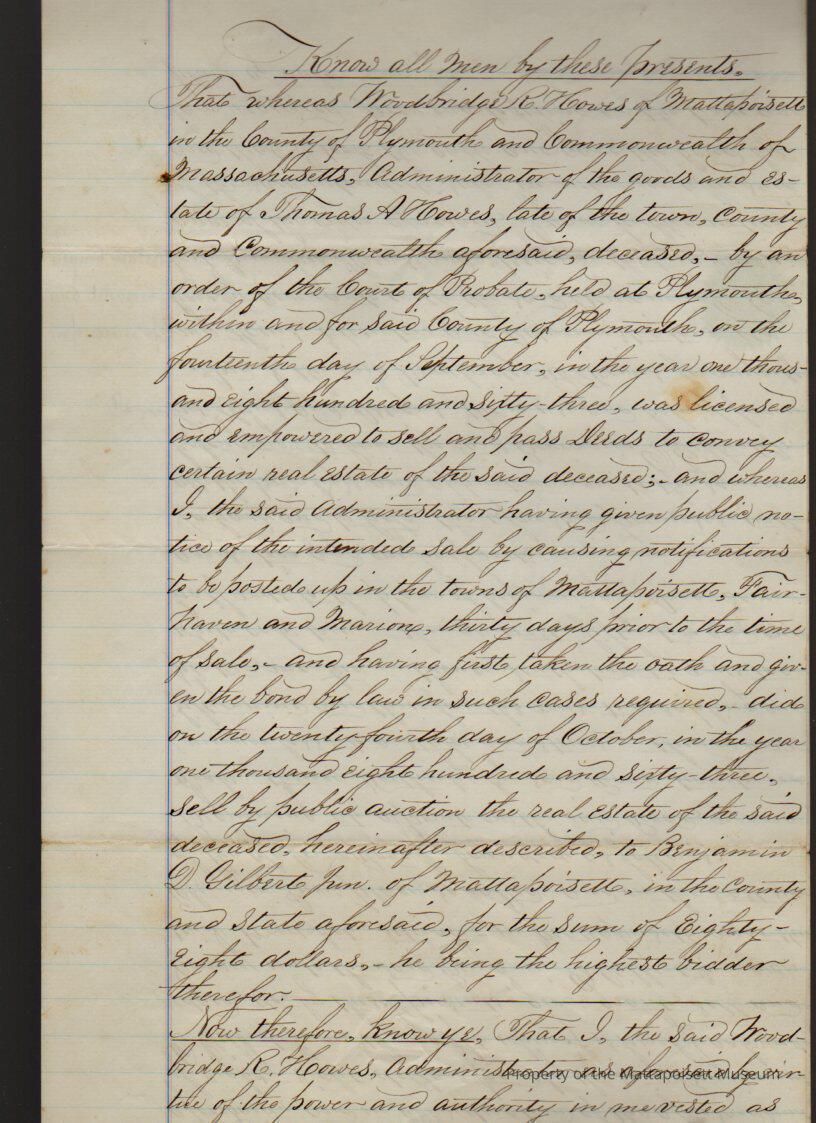 Know all Men by these Presents.
That whereas Woodbridge R. Howes of Mattapoisett
in the County of Plymouth and Commonwealth of
Massachusetts, Administrator of the goods and es-
tate of Thomas A Howes, late of the town, county
and Commonwealth aforesaid, deceased,- by an
order of the Court of Probate, held at Plymouth,
within and for said County of Plymouth, on the
fourteenth day of September, in the year one thous-
and eight hundred and sixty-three, was licensed
and empowered to sell and pass Deeds to convey
certain real estate of the said deceased;- and whereas
I, the said Administrator having given public no-
tice of the intended sale by causing notifications
to be posted up in the towns of Mattapoisett, Fair-
haven and Marion, thirty days prior to the time
of sale,- and having first taken the oath and giv-
en the bond by law in such cases required,- did
on the twenty-fourth day of October, in the year
one thousand eight hundred and sixty-three,
sell by public auction the real estate of the said
deceased, hereinafter described, to Benjamin
D. Gilbert Jun. of Mattapoisett, in the County
and State aforesaid, for the sum of Eighty-
Eight dollars,- he being the highest bidder
therefor.
Now therefore, know ye, That I, the said Wood-
bridge R. Howes, Administrator as aforesaid, by vir-
tue of the power and authority in me vested as
Property of the Mattapoisett Museum